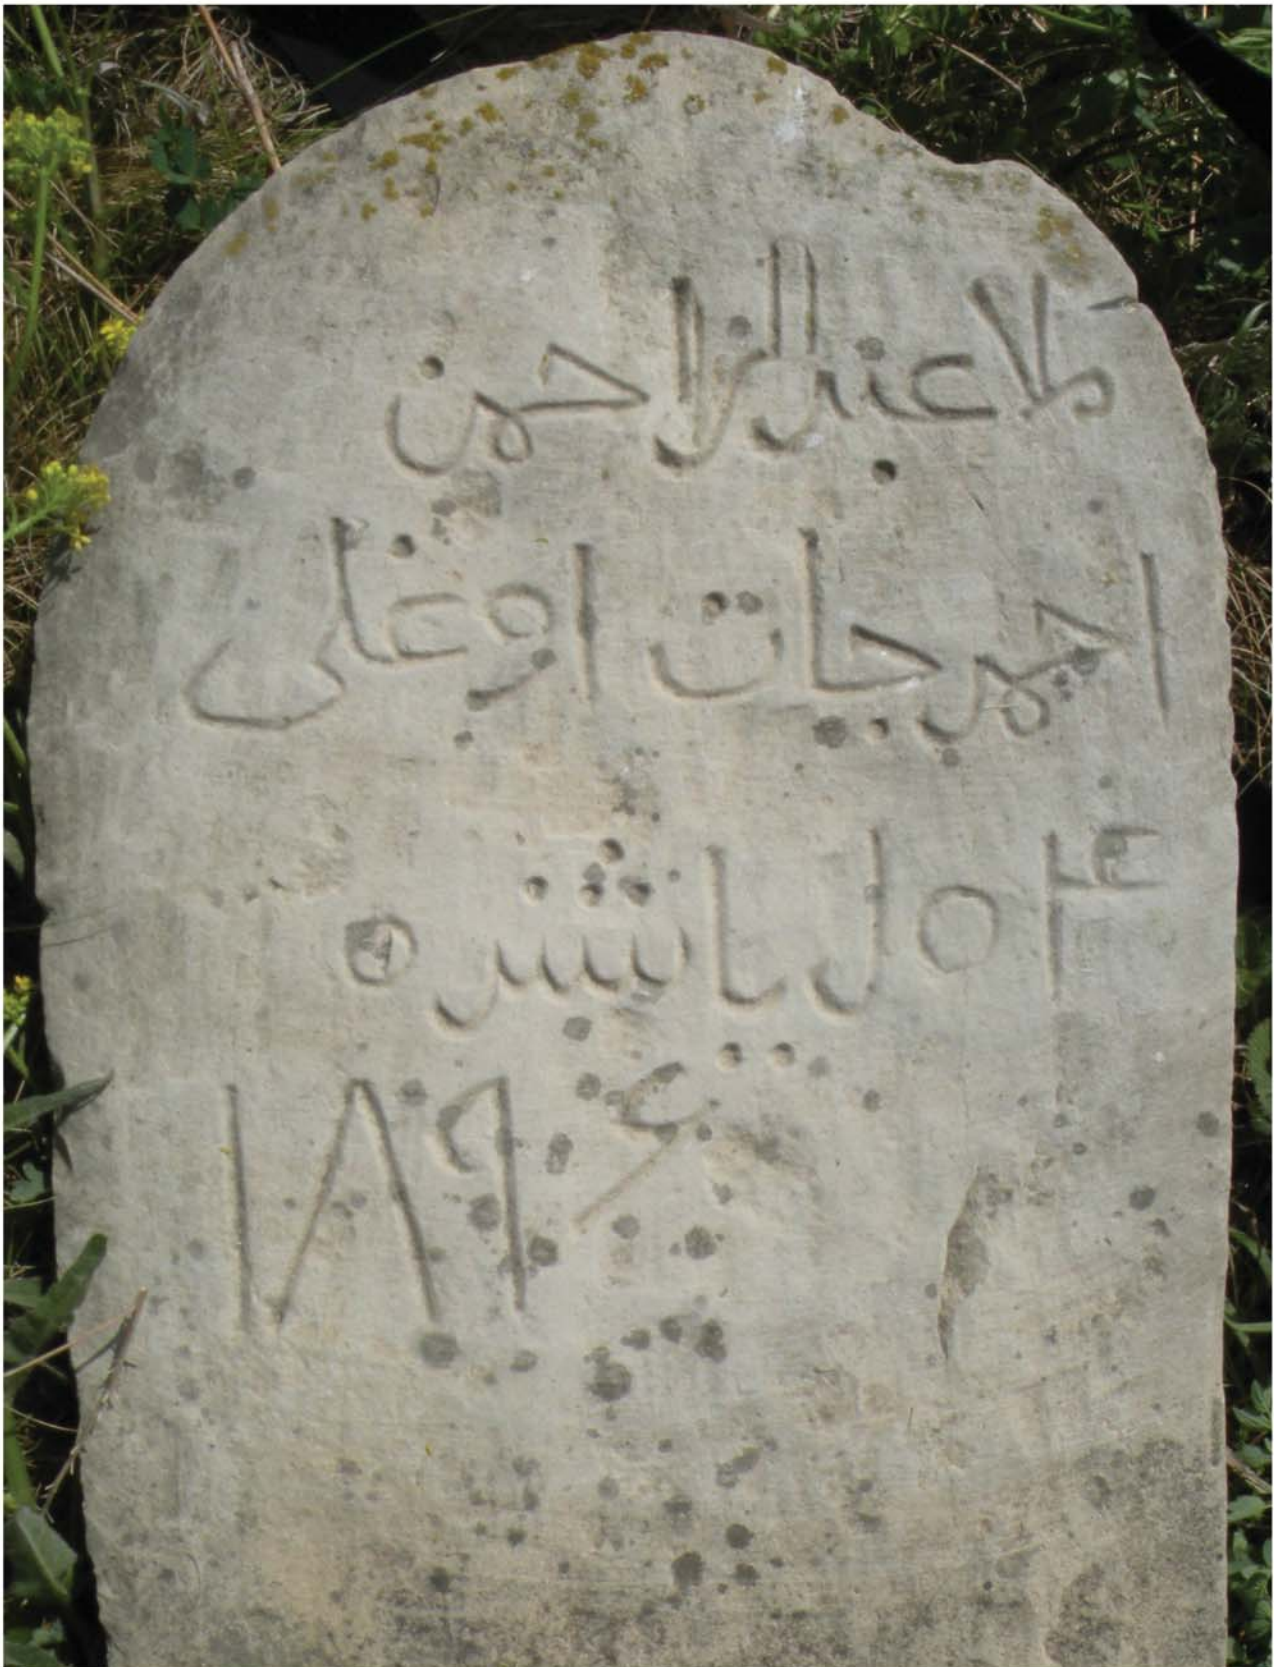 ملا عبد الراحمن
احمد جات اوغلی
٤١ ٥ ل ياشنده
١٨٩٤